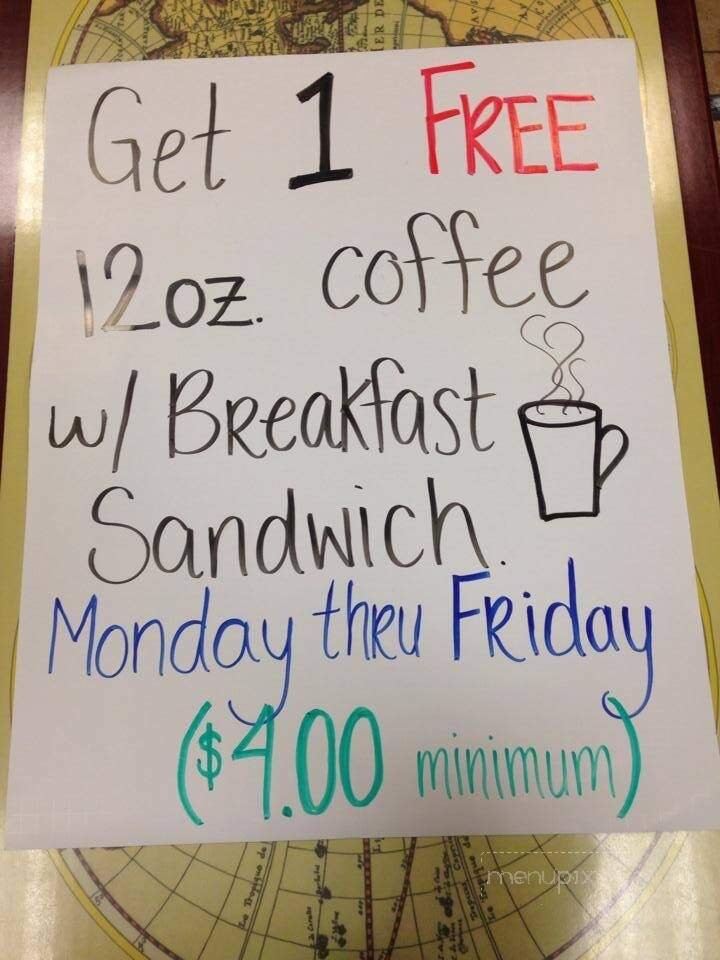 Get 1 FREE
12oz. coffee
w/ Breakfast
Sandwich.
Monday thru Friday
($4.00 minimum)
menupix